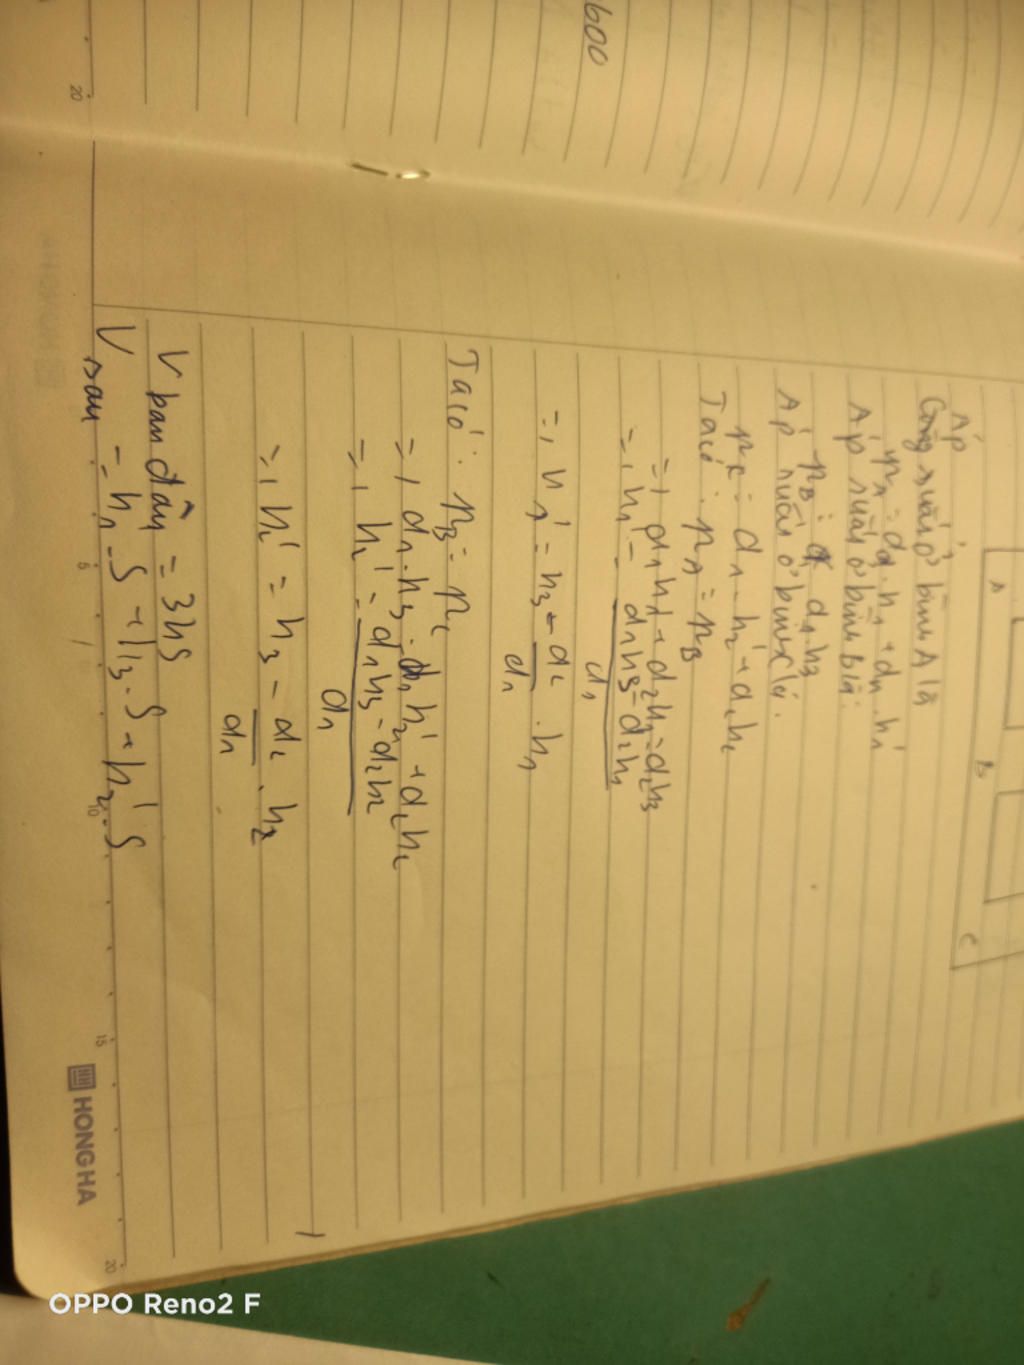 600
A
B
C
Áp
suất ở bình A là
pA = d2.h1 + d1.h1'
Áp suất ở bình B là:
pB = d1.h3
Áp suất ở bình C là:
pC = d1.h2' + d2h2
Ta có: pA = pB
=> d1h1' + d2h1 = d1h3
=> h1' = d1h3 - d2h1
d1
=> h1' = h3 - d2 . h1
d1
Ta có: pB = pC
=> d1.h3 = d1h2' + d2h2
=> h2' = d1h3 - d2h2
d1
=> h2' = h3 - d2 . h2
d1
V ban đầu = 3hS
V sau = h1'.S + h3.S + h2'.S
20
5
10
15
20
HONG HA
OPPO Reno2 F